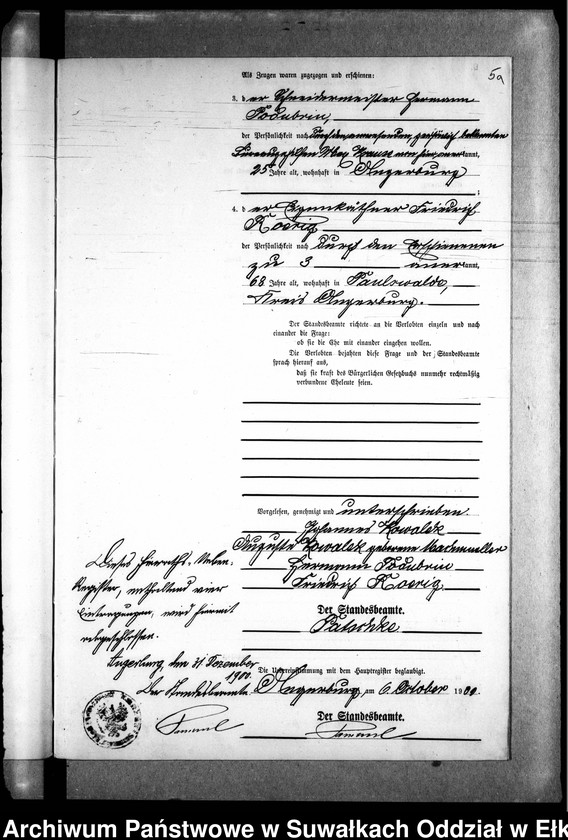 5a
Als Zeugen waren zugezogen und erschienen:
3. der Schneidermeister Hermann
Podubrin,
der Persönlichkeit nach durch
kannt,
25 Jahre alt, wohnhaft in Angerburg
;
4. der Eigenkäthner Friedrich
Koerig
der Persönlichkeit nach durch den Erschienenen
zu 3 anerkannt,
68 Jahre alt, wohnhaft in Paulswalde,
Kreis Angerburg.
Der Standesbeamte richtete an die Verlobten einzeln und nach
einander die Frage:
ob sie die Ehe mit einander eingehen wollen.
Die Verlobten bejahten diese Frage und der Standesbeamte
sprach hierauf aus,
daß sie kraft des Bürgerlichen Gesetzbuchs nunmehr rechtmäßig
verbundene Eheleute seien.
Vorgelesen, genehmigt und unterschrieben
Johannes Kowalek
Auguste Kowalek geborene
Hermann Podubrin
Friedrich Koerig
Der Standesbeamte.
Patschke
Dieses Heiraths-Neben-
Register, enthaltend vier
Eintragungen, wird hiermit
abgeschlossen.
Angerburg, den 31 Dezember
1900.
Der Standesbeamte
Die Übereinstimmung mit dem Hauptregister beglaubigt.
Angerburg, am 6 Oktober 1900.
Der Standesbeamte.
Archiwum Państwowe w Suwałkach Oddział w Ełk